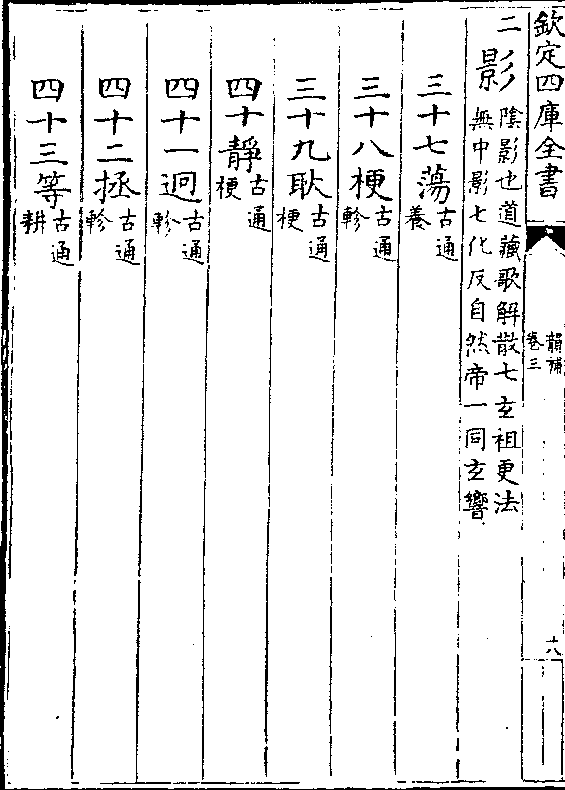 欽定四庫全書
韻補
卷三
十八
二影陰影也道藏歌解散七玄祖更法無中影七化反自然帝一同玄響
三十七蕩古通養
三十八梗古通軫
三十九耿古通梗
四十靜古通梗
四十一迥古通軫
四十二拯古通軫
四十三等古通耕